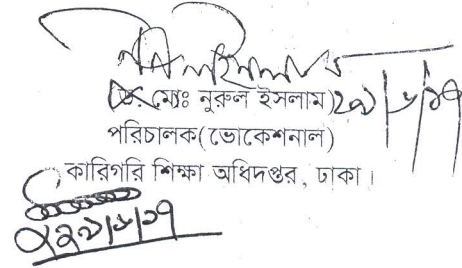 মোঃ নুরুল ইসলাম) ২৯/৮/১৭
পরিচালক(ভোকেশনাল)
কারিগরি শিক্ষা অধিদপ্তর, ঢাকা।
২৯/৮/১৭